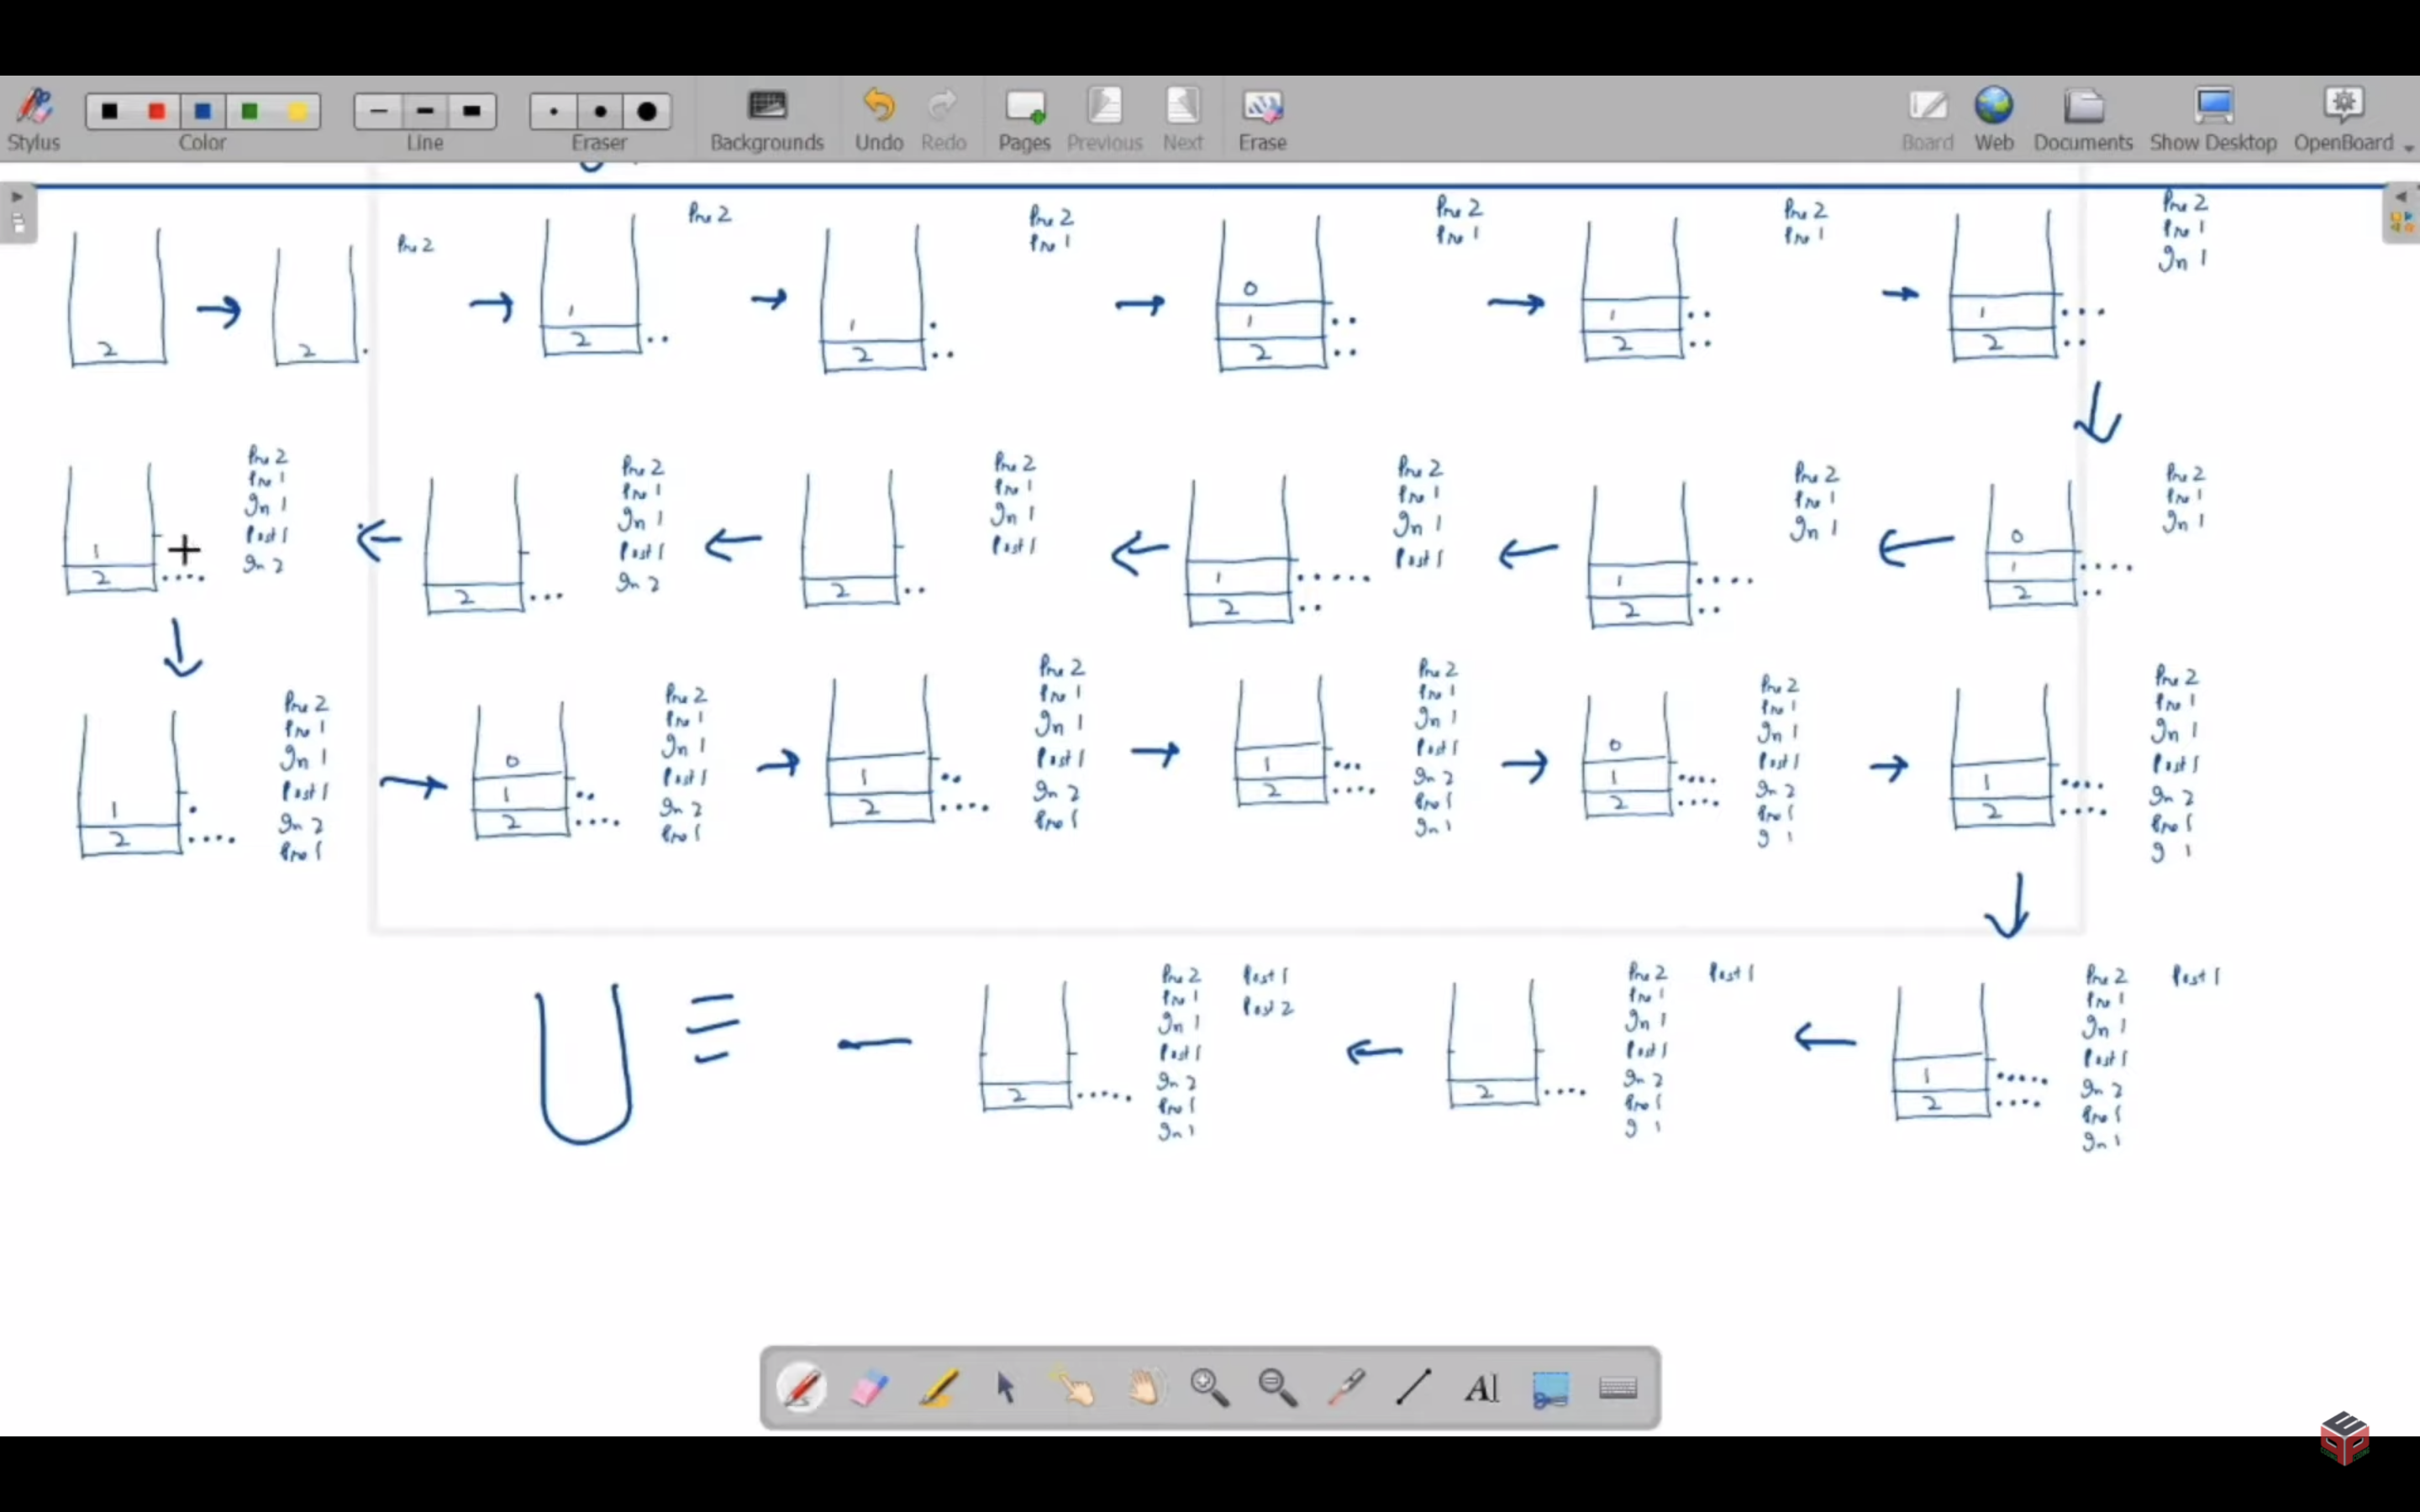 Stylus
Color
Line
Eraser
Backgrounds
Undo
Redo
Pages
Previous
Next
Erase
Board
Web
Documents
Show Desktop
OpenBoard
2
2
Pre 2
1
2
Pre 2
1
2
Pre 2
Pre 1
0
1
2
Pre 2
Pre 1
1
2
Pre 2
Pre 1
1
2
Pre 2
Pre 1
In 1
1
2
Pre 2
Pre 1
In 1
Post 1
In 2
2
Pre 2
Pre 1
In 1
Post 1
In 2
2
Pre 2
Pre 1
In 1
Post 1
1
2
Pre 2
Pre 1
In 1
Post 1
1
2
Pre 2
Pre 1
In 1
0
1
2
Pre 2
Pre 1
In 1
1
2
Pre 2
Pre 1
In 1
Post 1
In 2
Pre 1
0
1
2
Pre 2
Pre 1
In 1
Post 1
In 2
Pre 1
1
2
Pre 2
Pre 1
In 1
Post 1
In 2
Pre 1
1
2
Pre 2
Pre 1
In 1
Post 1
In 2
Pre 1
In 1
0
1
2
Pre 2
Pre 1
In 1
Post 1
In 2
Pre 1
I 1
1
2
Pre 2
Pre 1
In 1
Post 1
In 2
Pre 1
I 1
2
Pre 2 Post 1
Pre 1 Post 2
In 1
Post 1
In 2
Pre 1
In 1
2
Pre 2 Post 1
Pre 1
In 1
Post 1
In 2
Pre 1
I 1
1
2
Pre 2 Post 1
Pre 1
In 1
Post 1
In 2
Pre 1
In 1
AI